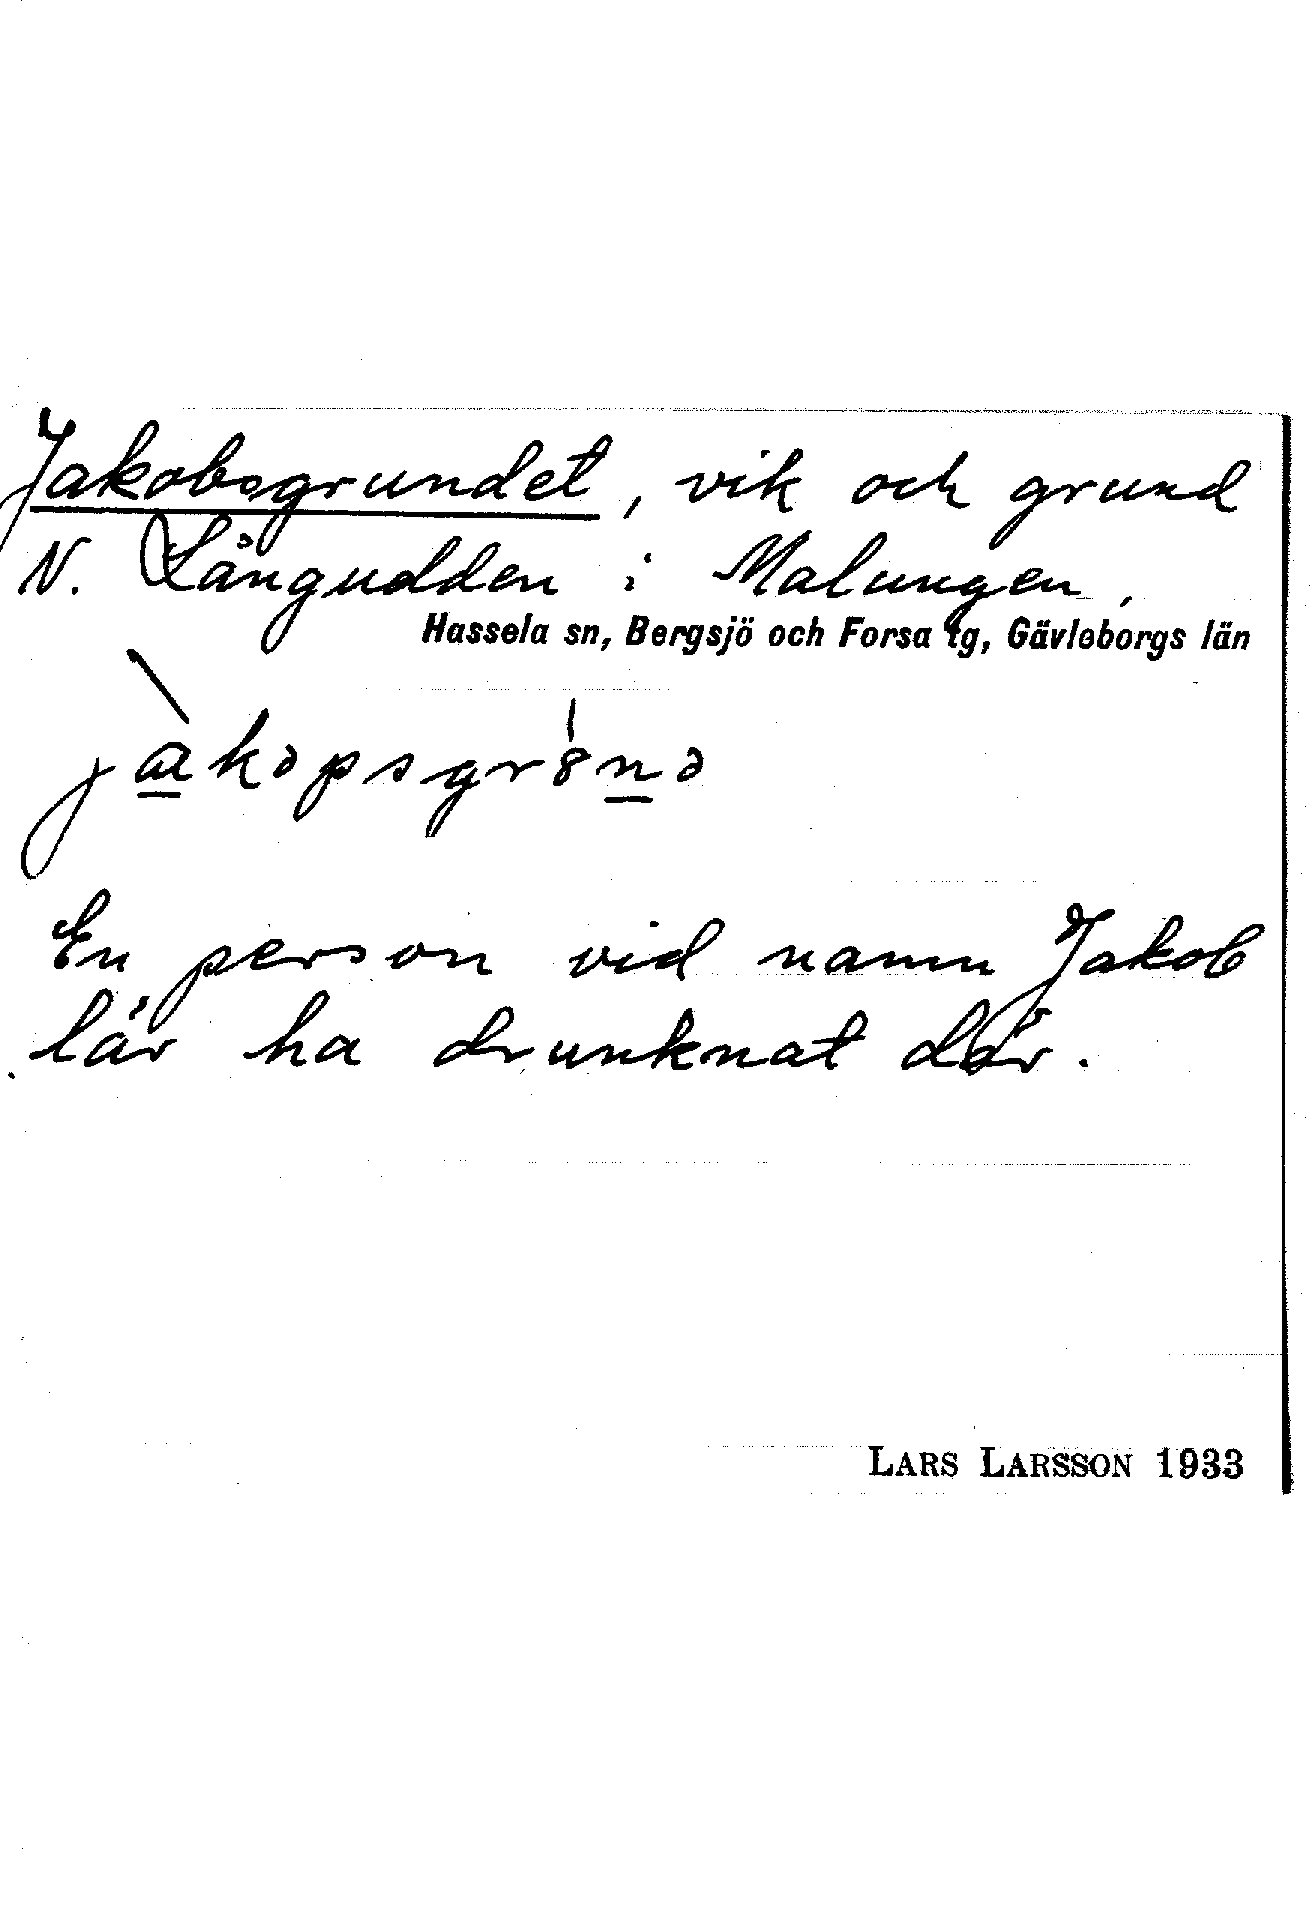 Jakobsgrundet, vik och grund
N. Långudden i Malungen.
Hassela sn, Bergsjö och Forsa tg, Gävleborgs län
jɑ̀kəpsgr8́nə
En person vid namn Jakob
lär ha drunknat där.
LARS LARSSON 1933